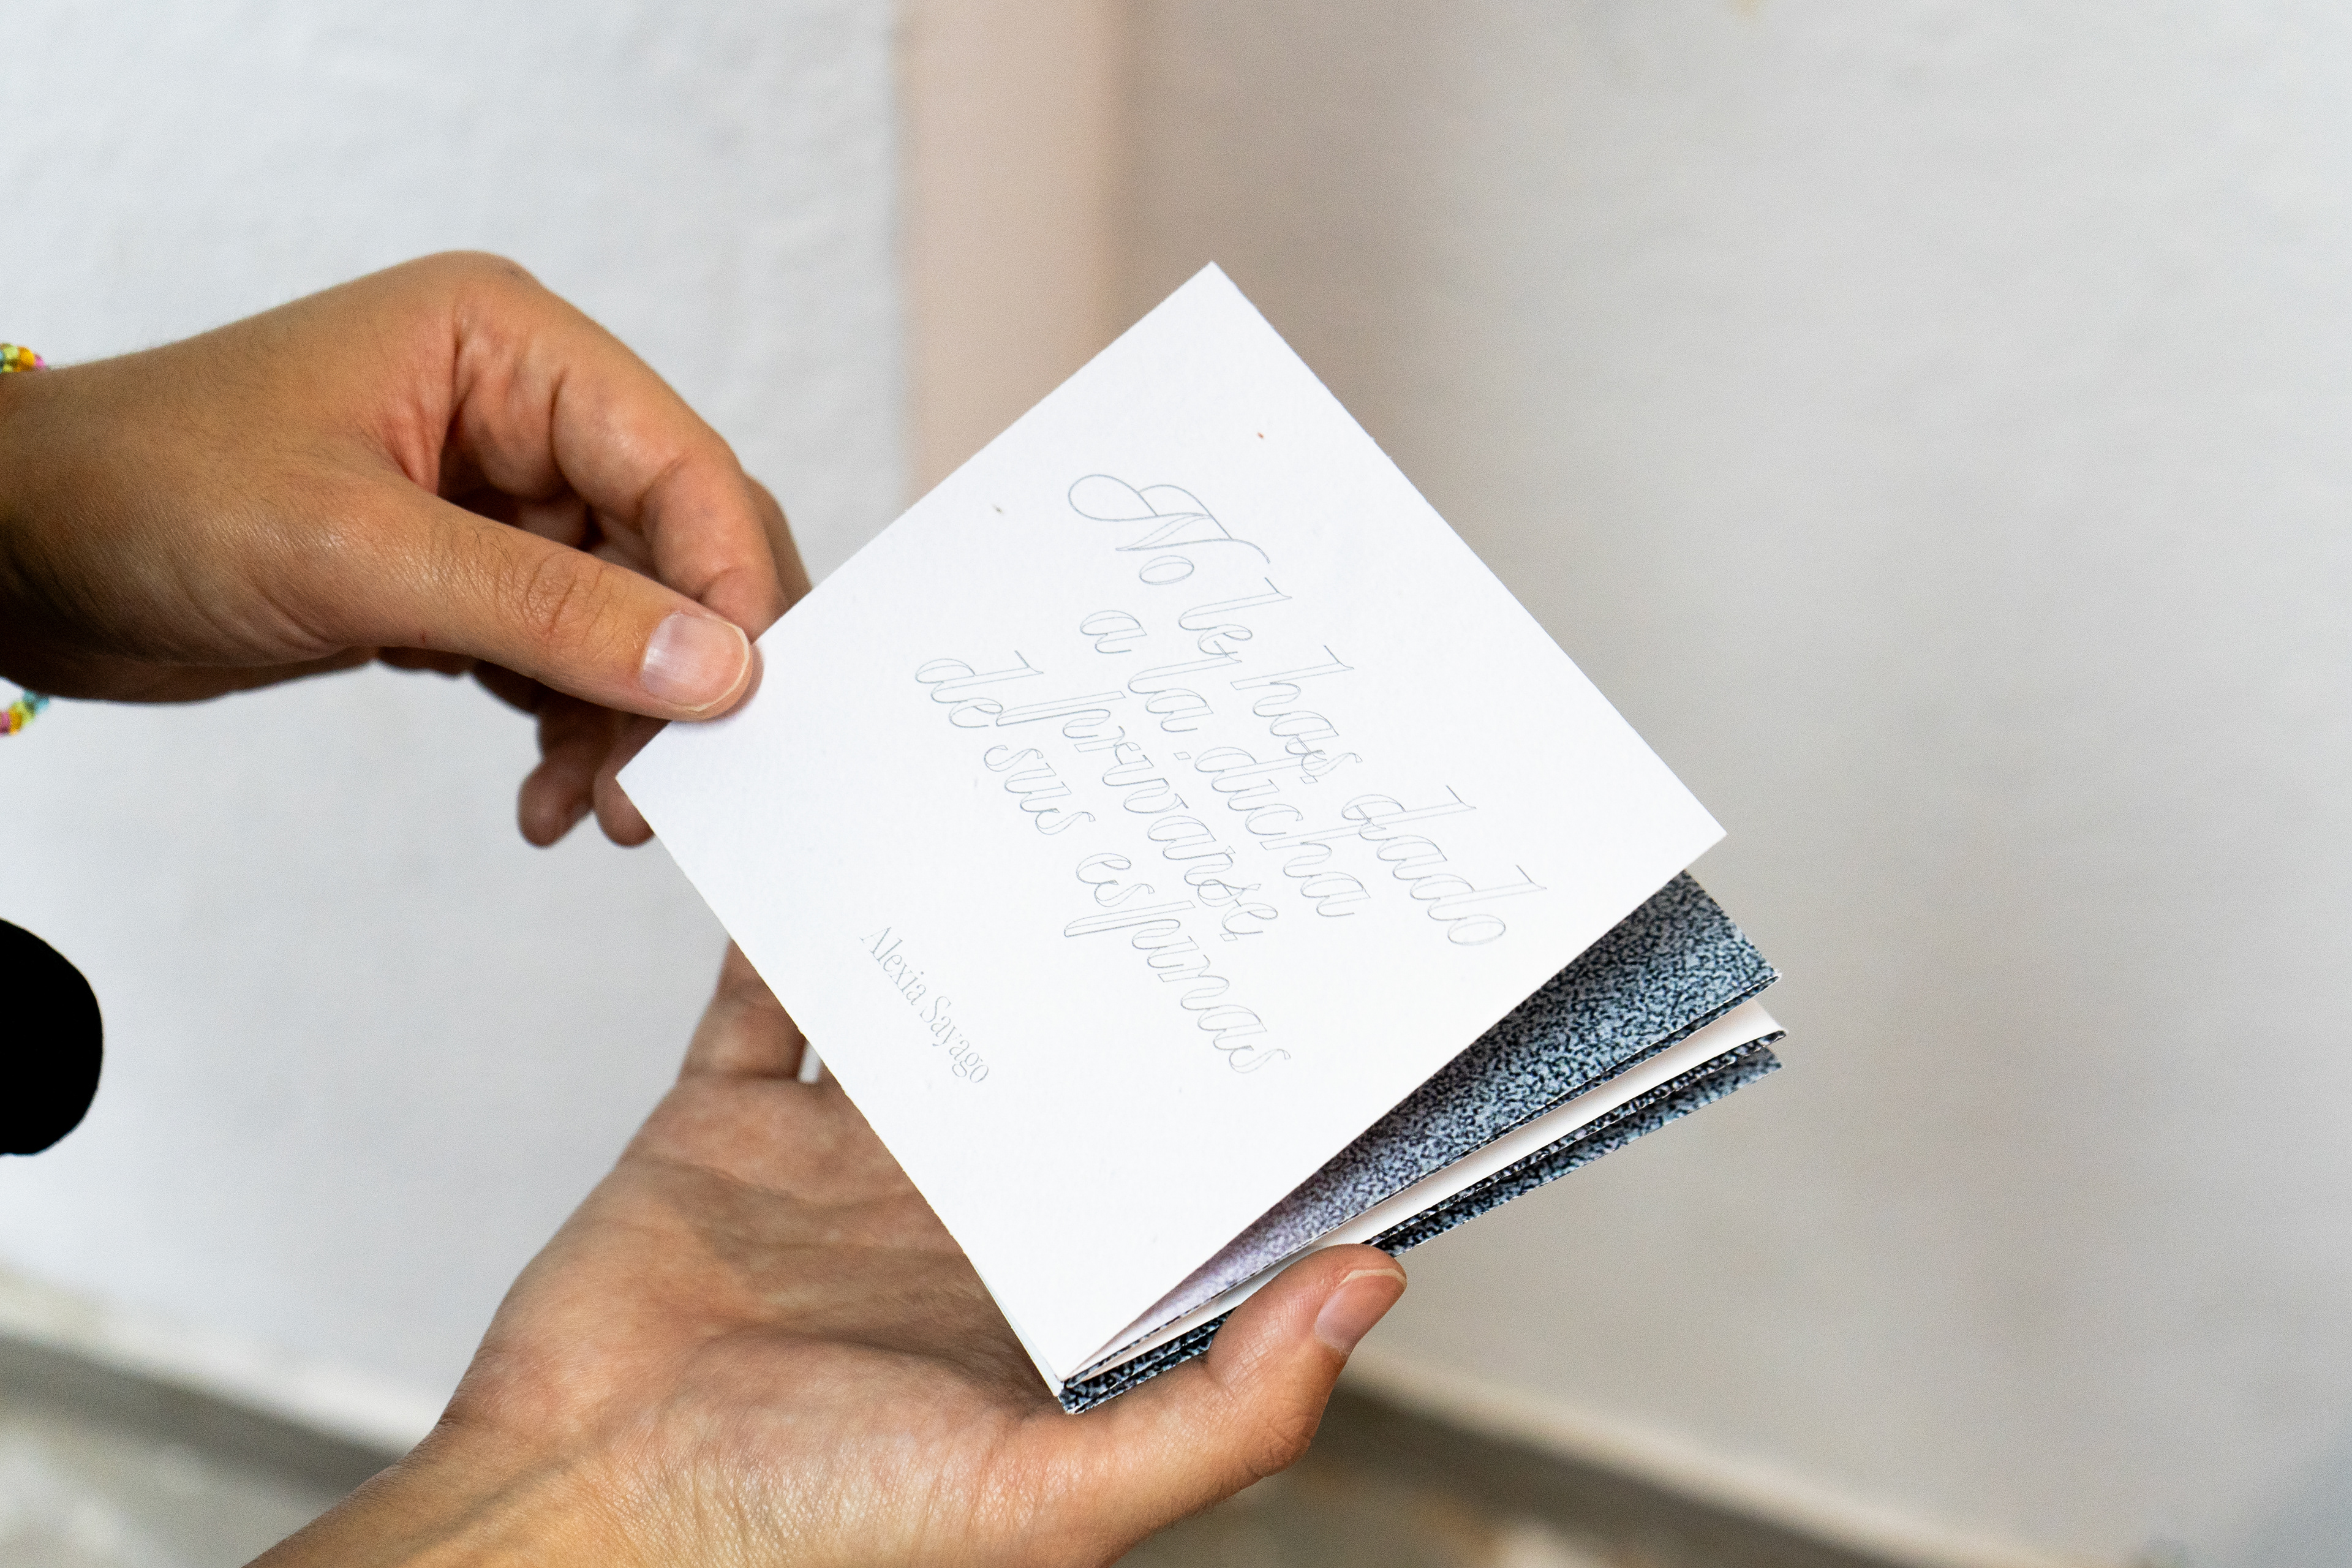 No le has dado
a la dicha
de derivarse
de sus espumas
Alexia Sayago